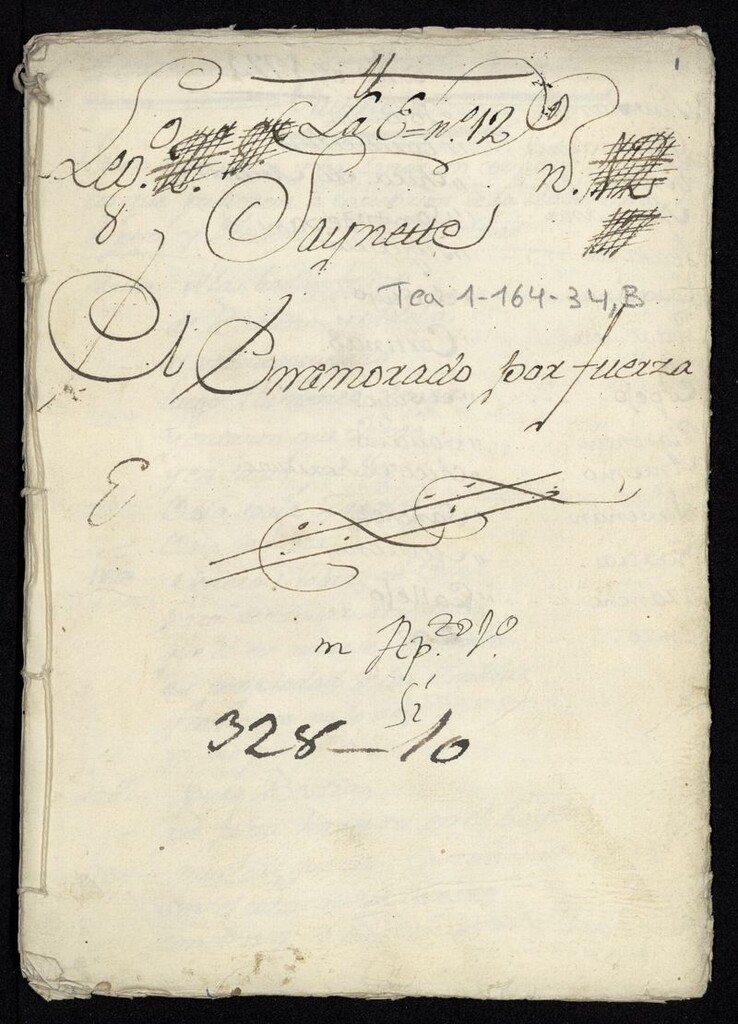 1
Leg.º La E=nº.12 n.
8 Saynette
Tea 1-164-34,B
El Enamorado por fuerza
E
m Ap.
Si
328-10